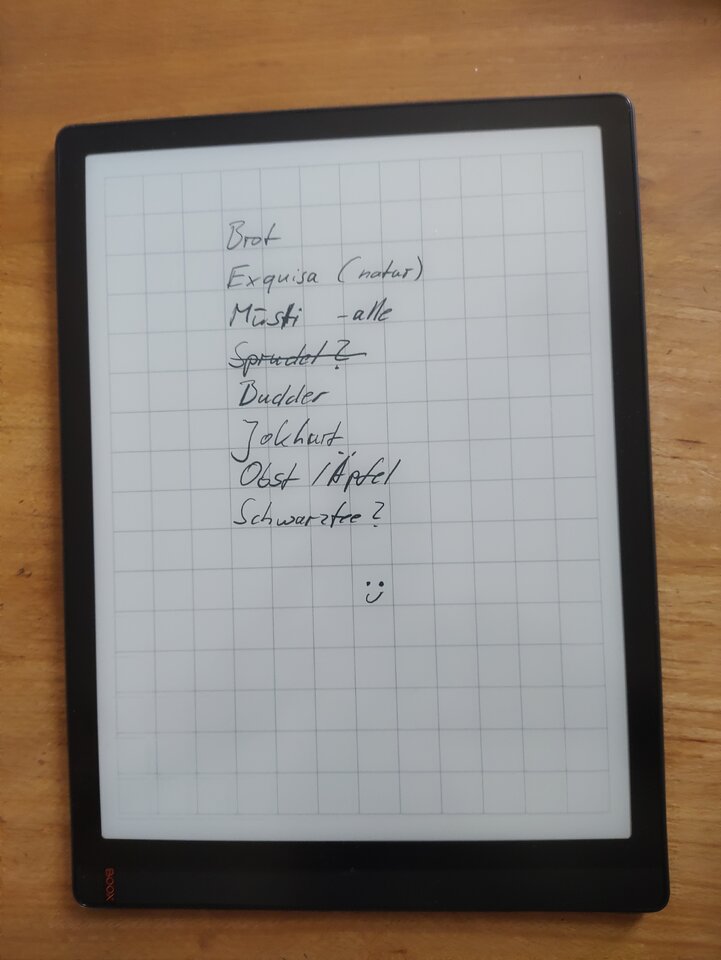 Brot
Exquisa (natur)
Müsli -alle
Sprudel?
Budder
Jokhurt
Obst /Äpfel
Schwarztee?
BOOX